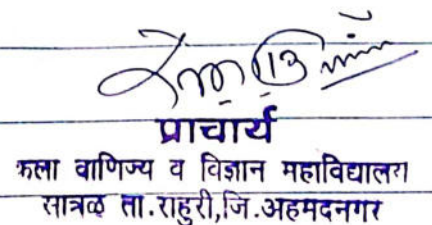 प्राचार्य
कला वाणिज्य व विज्ञान महाविद्यालय
सात्रळ ता.राहुरी,जि.अहमदनगर